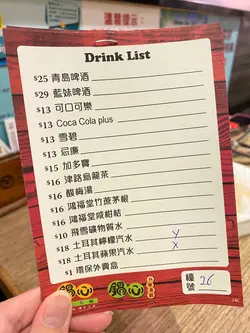 Drink List
$25 青島啤酒
$29 藍妹啤酒
$13 可口可樂
$13 Coca Cola plus
$13 雪碧
$13 忌廉
$15 加多寶
$16 津路烏龍茶
$16 酸梅湯
$16 鴻福堂竹蔗茅根
$16 鴻福堂咸柑結
$10 飛雪礦物質水
$18 土耳其檸檬汽水 Y
$18 土耳其蘋果汽水 X
$1 環保外賣島
檯號 26
鍋心
鍋心